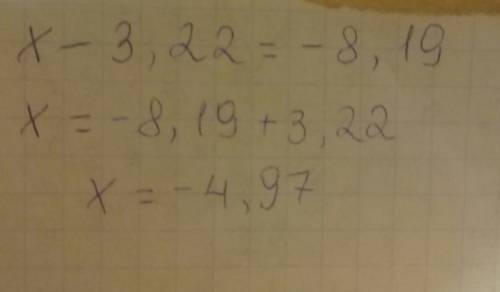 x - 3,22 = -8,19
x = -8,19 + 3,22
x = -4,97